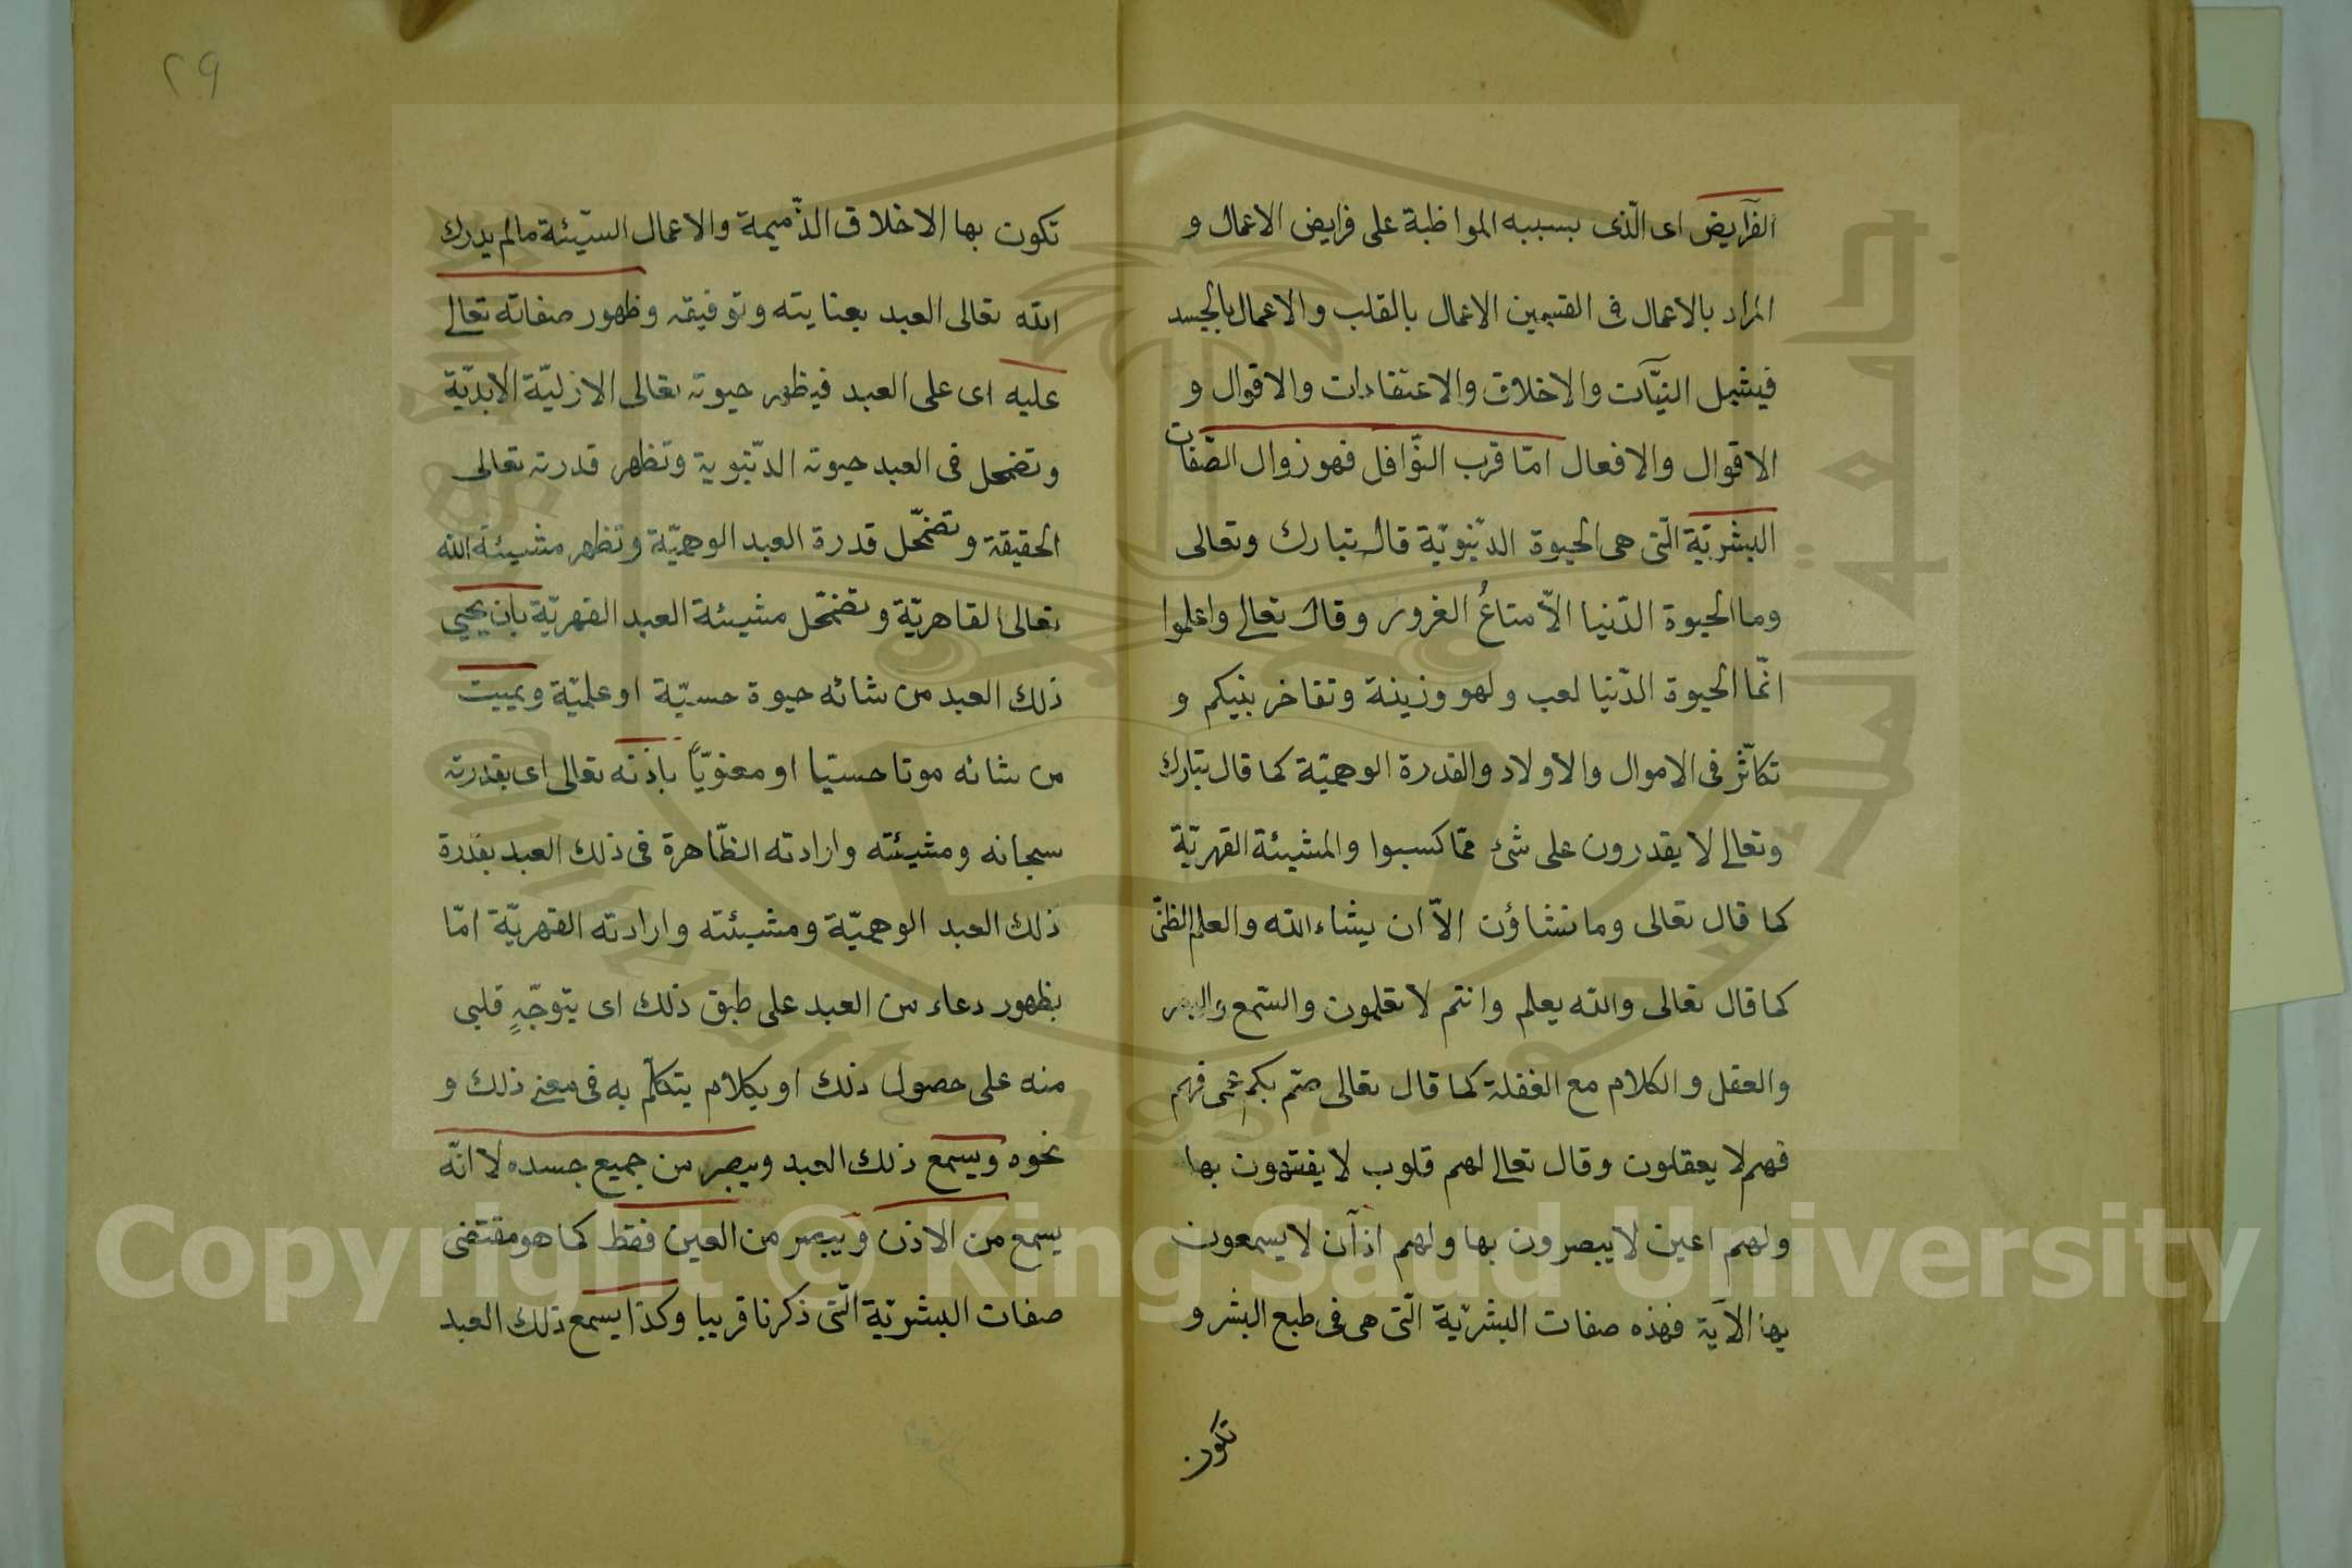 الفرآيض اى الّذى بسببه المواظبة على فرايض الاعمال و
المراد بالاعمال فى القسمين الاعمال بالقلب والاعمال بالجسد
فيشمل النيّات والاخلاق والاعتقادات والاقوال و
الاقوال والافعال امّا قرب النّوافل فهو زوال الصّفات
البشريّة الّتى هى الحيوة الدّنيويّة قال تبارك وتعالى
وما الحيوة الدّنيا الاّ متاعُ الغرور وقال تعالى واعلموا
انّما الحيوة الدّنيا لعب ولهو وزينة وتفاخر بينكم و
تكاثر فى الاموال والاولاد والقدرة الوهميّة كما قال تبارك
وتعالى لا يقدرون على شئ ممّا كسبوا والمشيئة القهريّة
كما قال تعالى وما تشاؤن الاّ ان يشاء الله والعلم الظنّى
كما قال تعالى والله يعلم وانتم لا تعلمون والسّمع والبصر
والعقل والكلام مع الغفلة كما قال تعالى صّم بكم عمى فهم
فهم لا يعقلون وقال تعالى لهم قلوب لا يفقهون بها
ولهم اعين لا يبصرون بها ولهم اذآن لا يسمعون
بها الآية فهذه صفات البشريّة الّتى هى فى طبع البشر و
تكون
٢٩
تكون بها الاخلاق الذّميمة والاعمال السّيّئة مالم يدرك
الله تعالى العبد بعنايته وتوفيقه وظهور صفاته تعالى
عليه اى على العبد فيظهر حيوته تعالى الازليّة الابديّة
وتضمحل فى العبد حيوته الدّنيوية وتظهر قدرته تعالى
الحقيقة وتضمحّل قدرة العبد الوهميّة وتظهر مشيئة الله
تعالى القاهريّة وتضمحّل مشيئة العبد القهريّة بان يحيى
ذلك العبد من شائه حيوة حسيّة او علميّة ويميت
من شائه موتا حسيّا او معنويّاً باذنه تعالى اى بقدرته
سبحانه ومشيئته وارادته الظّاهرة فى ذلك العبد بقدرة
ذلك العبد الوهميّة ومشيئته وارادته القهريّة امّا
بظهور دعاء من العبد على طبق ذلك اى بتوجّهٍ قلبى
منه على حصول ذلك او بكلام يتكلّم به فى معنى ذلك و
نحوه ويسمع ذلك العبد ويبصر من جميع جسده لا انّه
يسمع من الاذن ويبصر من العين فقط كما هو مقتضى
صفات البشريّة الّتى ذكرنا قريبا وكذا يسمع ذلك العبد
Copyright © King Saud University